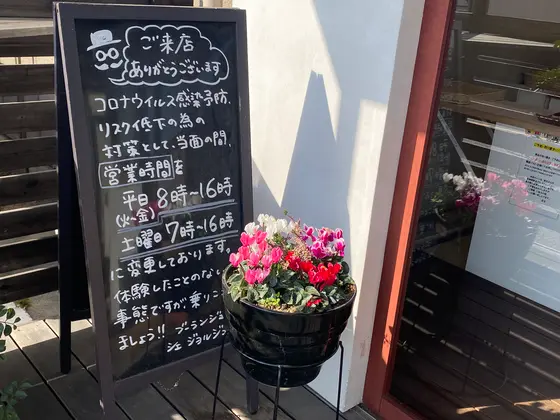 ご来店
ありがとうございます
コロナウイルス感染予防、
リスク低下の為の
対策として、当面の間、
営業時間を
平日 8時〜16時
(火〜金)
土曜日 7時〜16時
に変更しております。
体験したことのない
事態ですが乗りこ
ましょう!! ブーランジ
シェ ジョルジ